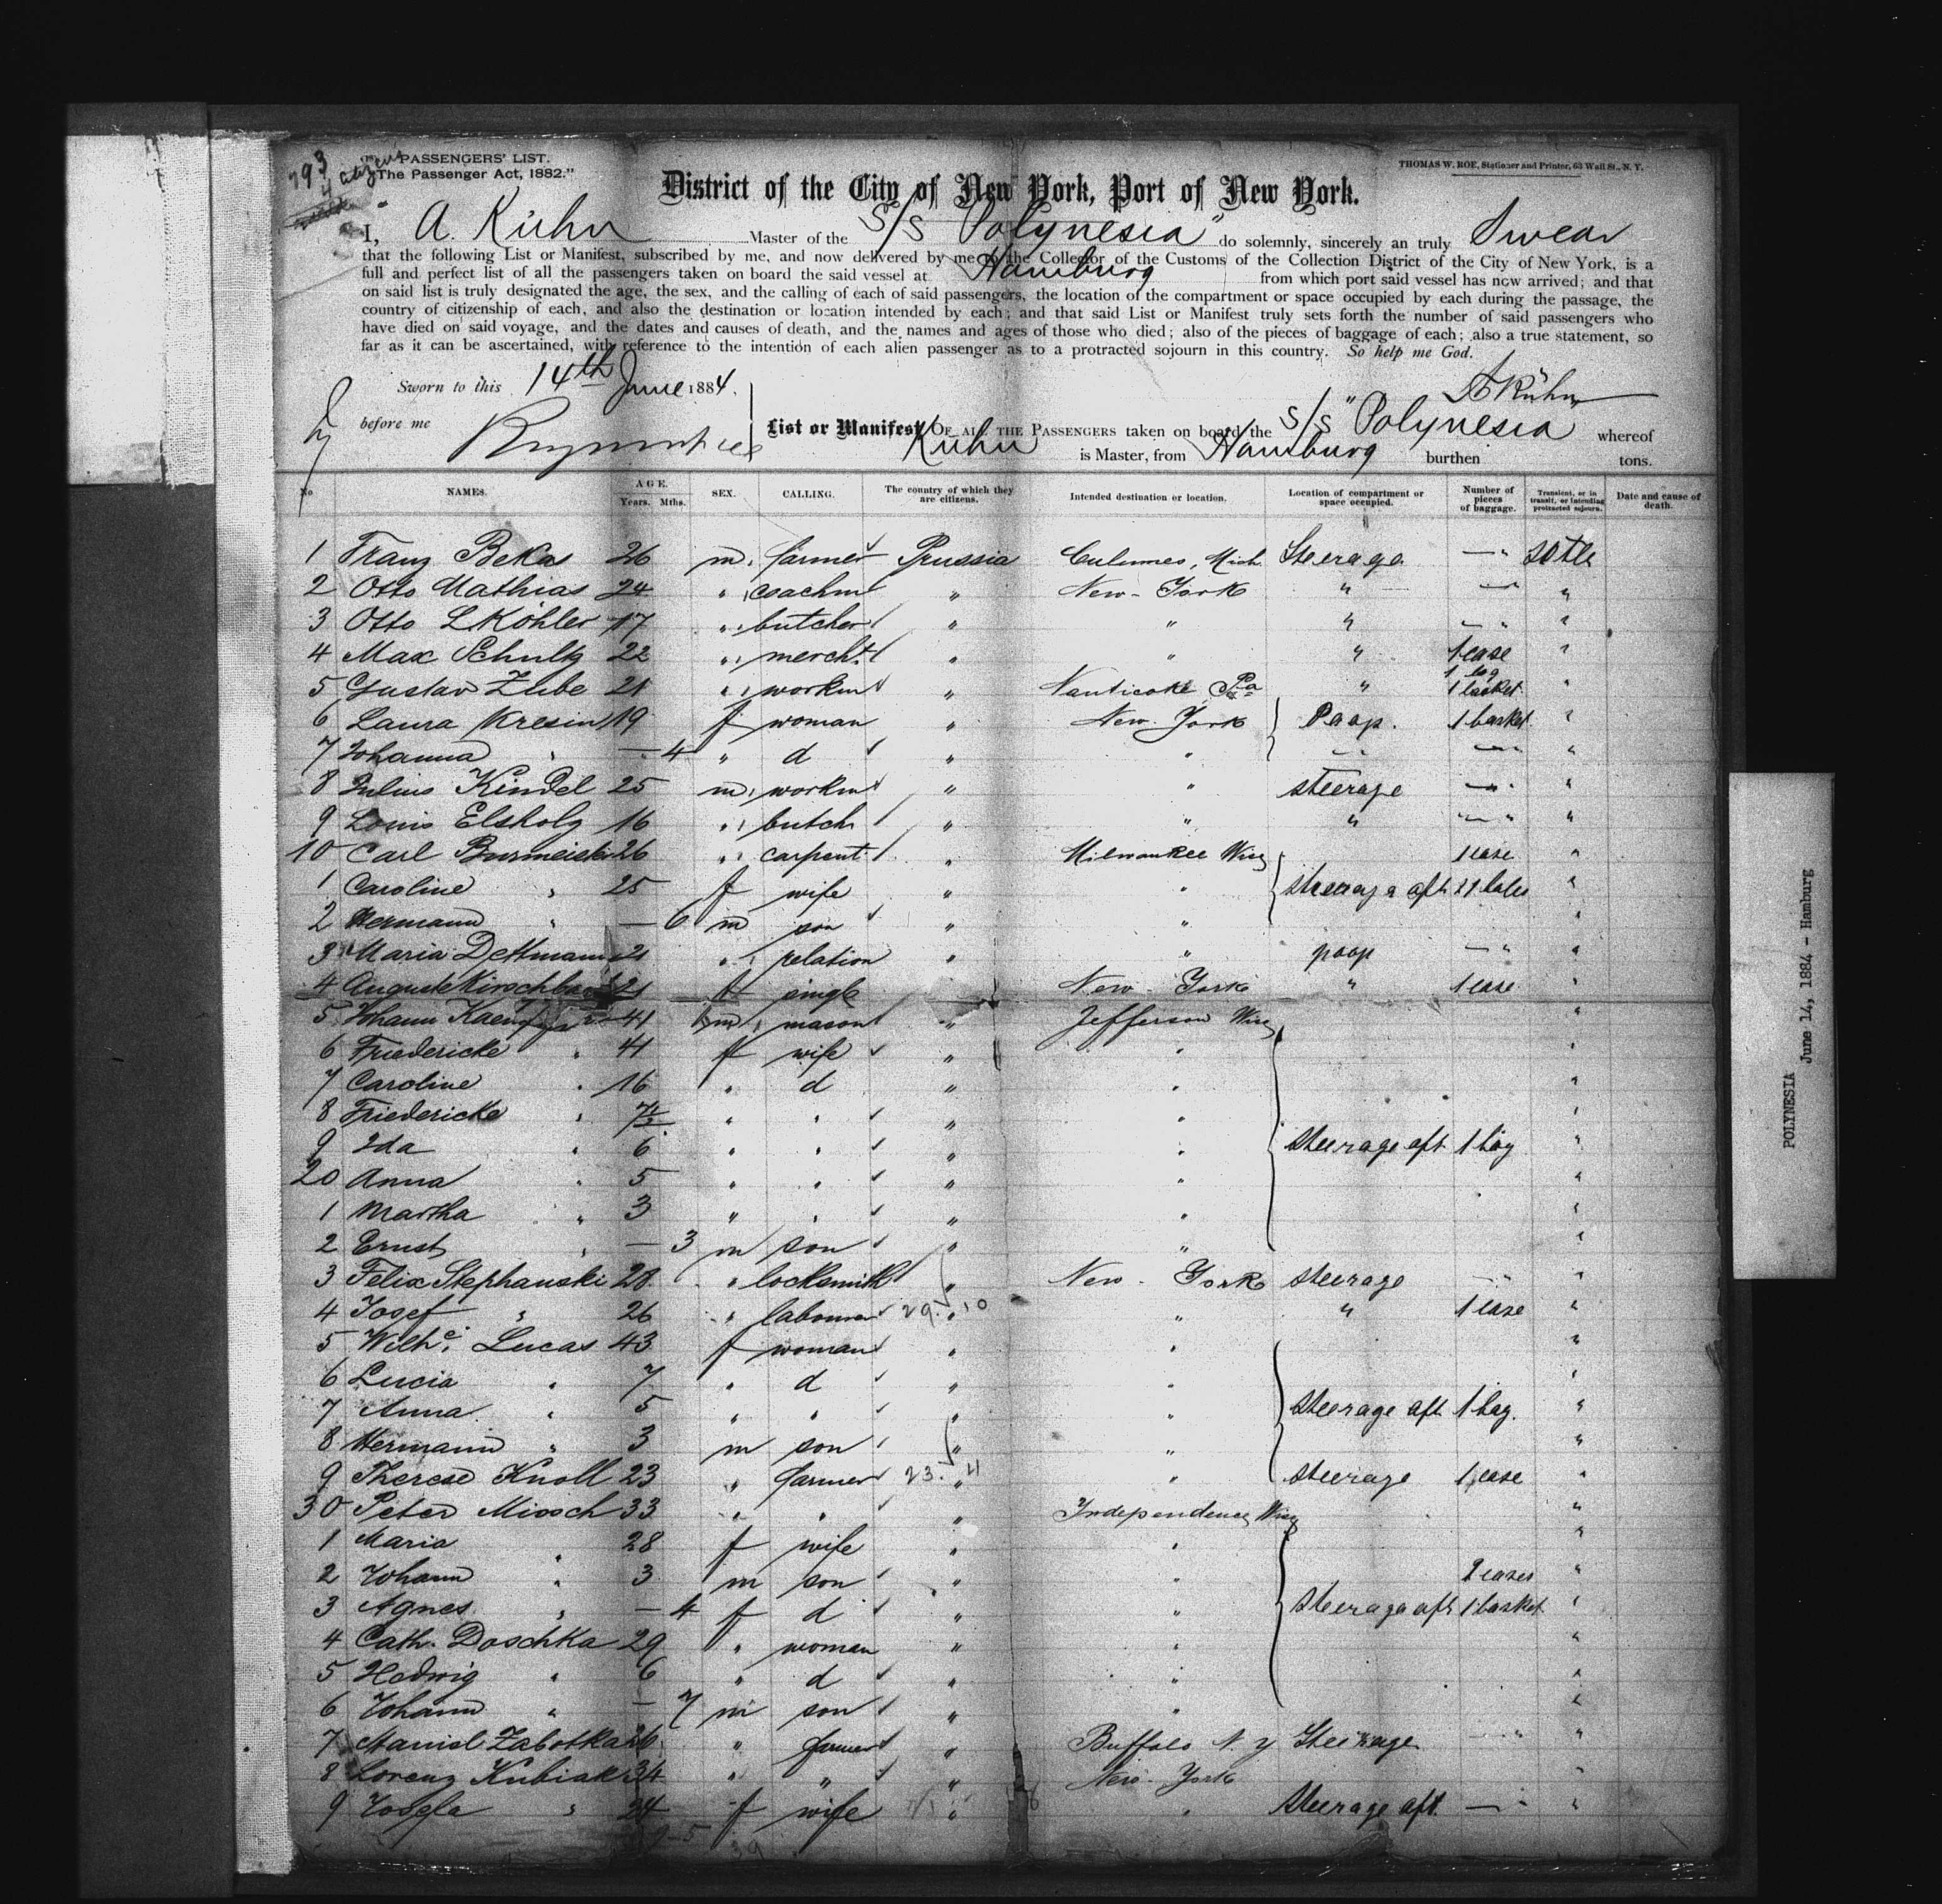 793
4 citizens
"PASSENGERS' LIST.
"The Passenger Act, 1882."
THOMAS W. ROE, Stationer and Printer, 63 Wall St., N. Y.
District of the City of New York, Port of New York.
I, A. Kühn Master of the S/S "Polynesia" do solemnly, sincerely an truly Swear
that the following List or Manifest, subscribed by me, and now delivered by me to the Collector of the Customs of the Collection District of the City of New York, is a
full and perfect list of all the passengers taken on board the said vessel at Hamburg from which port said vessel has now arrived; and that
on said list is truly designated the age, the sex, and the calling of each of said passengers, the location of the compartment or space occupied by each during the passage, the
country of citizenship of each, and also the destination or location intended by each; and that said List or Manifest truly sets forth the number of said passengers who
have died on said voyage, and the dates and causes of death, and the names and ages of those who died; also of the pieces of baggage of each; also a true statement, so
far as it can be ascertained, with reference to the intention of each alien passenger as to a protracted sojourn in this country. So help me God.
Sworn to this 14th June 1884.
A Kühn
before me
List or Manifest OF ALL THE PASSENGERS taken on board the S/S "Polynesia whereof
Kühn is Master, from Hamburg burthen tons.
No NAMES. AGE. Years. Mths. SEX. CALLING. The country of which they are citizens. Intended destination or location. Location of compartment or space occupied. Number of pieces of baggage. Transient, or in transit, or intending protracted sojourn. Date and cause of death.
1 Franz Beka 26 m. farmer Prussia Mich. Steerage — " settle
2 Otto Mathias 24 " coachm " New-York " — "
3 Otto L Köhler 17 " butcher " " " — " "
4 Max Schultz 22 " mercht " " " 1 case "
5 Gustav Zube 21 " workm " Nanticoke Pa " 1 bag 1 basket "
6 Laura Kresin 19 f woman " New-York Poop. 1 basket "
7 Johanna " — 4 " d " " — " — " "
8 Julius Kindel 25 m. workm " " steerage — " "
9 Louis Elsholz 16 " butch " " " — " "
10 Carl Burmeister 26 " carpent. " Milwaukee Wisc 1 case "
1 Caroline " 25 f wife " " steerage aft 21 bales "
2 Hermann " — 6 m son " " "
3 Maria Dettmann 21 " relation " " poop — " "
4 Auguste Kirschb 21 f single " New-York " 1 case "
5 Johann 41 m mason " Jefferson Wisc "
6 Friedericke " 41 f wife " " "
7 Caroline " 16 " d " " "
8 Friedericke " " " " " "
9 Ida " 6 " " " " steerage aft 1 bag "
20 Anna " 5 " " " " "
1 Martha " 3 " " " " "
2 Ernst " — 3 m son " " "
3 Felix Stephanski 28 " locksmith " New-York steerage — " "
4 Josef " 26 " labourer 29. " 10 " " 1 case "
5 Wilhe. Lucas 43 f woman " " "
6 Lucia " 7 " d " " "
7 Anna " 5 " " " " steerage aft 1 bag. "
8 Hermann " 3 m son " " "
9 Therese Knoll 23 " farmer 23. " 4 " steerage 1 case "
30 Peter Miosch 33 " " " Independence Wisc "
1 Maria " 28 f wife " " "
2 Johann " 3 m son " " 2 cases "
3 Agnes " — 4 f d " " steerage aft 1 basket "
4 Cath. Doschka 29 " woman " " "
5 Hedwig " 6 " d " " "
6 Johann " — 7 m son " " "
7 Zabotka 26 " farmer " Buffalo N.Y Steerage — " "
8 Lorenz Kubiak 34 " " " New-York "
9 Josefa " 24 f wife " " Steerage aft. — " "
39
POLYNESIA June 14, 1884 - Hamburg